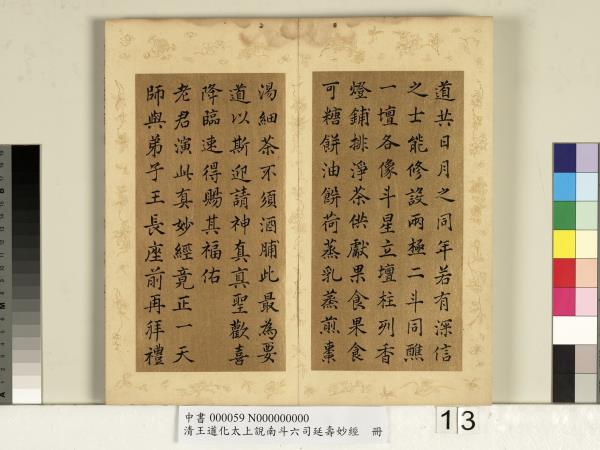 道共日月之同年若有深信
之士能修設兩極二斗同醮
一壇各像斗星立壇柱列香
燈鋪排淨茶供獻果食果食
可糖餅油䭔荷蒸乳蒸煎棗
湯細茶不須酒脯此最為要
道以斯迎請神真真聖歡喜
降臨速得賜其福佑
老君演此真妙經竟正一天
師與弟子王長座前再拜禮
中書 000059 N000000000
清王道化太上說南斗六司延壽妙經 冊
13